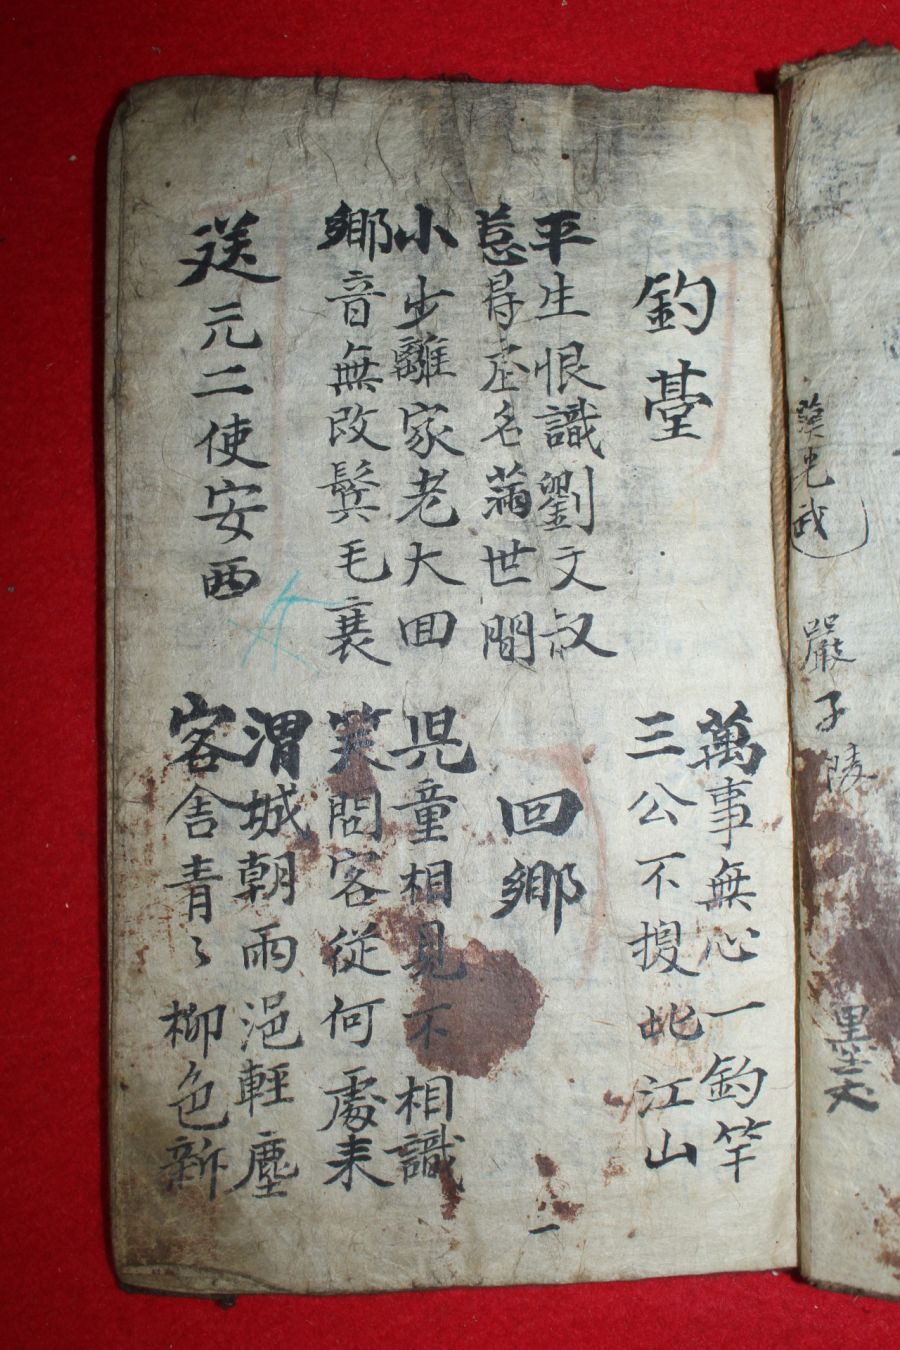 漢光武
嚴子陵
釣臺
萬事無心一釣竿
三公不換此江山
平生恨識劉文叔
惹得虗名滿世間
回鄉
小少離家老大囬
鄉音無改鬢毛衰
児童相見不相識
笑問客從何處来
送元二使安西
渭城朝雨浥輕塵
客舍青々柳色新